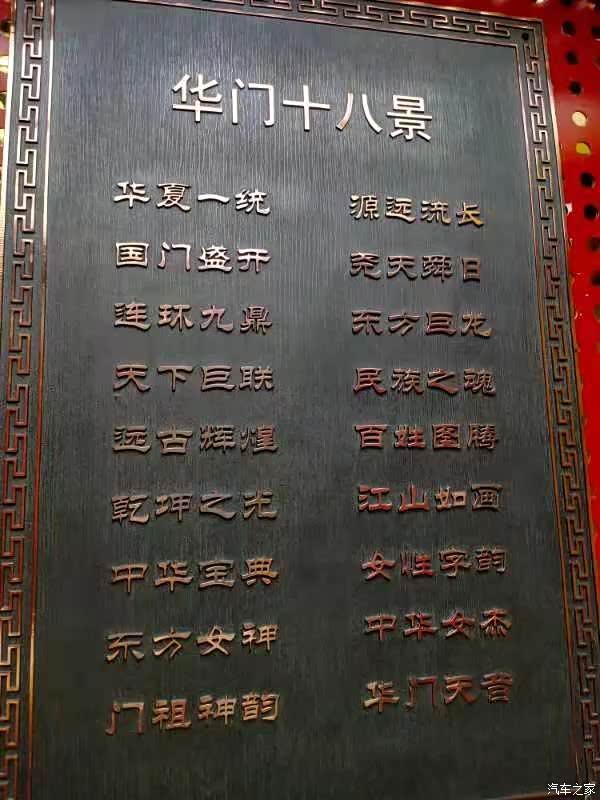 华门十八景
华夏一统 源远流长
国门盛开 尧天舜日
连环九鼎 东方巨龙
天下巨联 民族之魂
远古辉煌 百姓图腾
乾坤之光 江山如画
中华宝典 女性字韵
东方女神 中华女杰
门祖神韵 华门天音
汽车之家